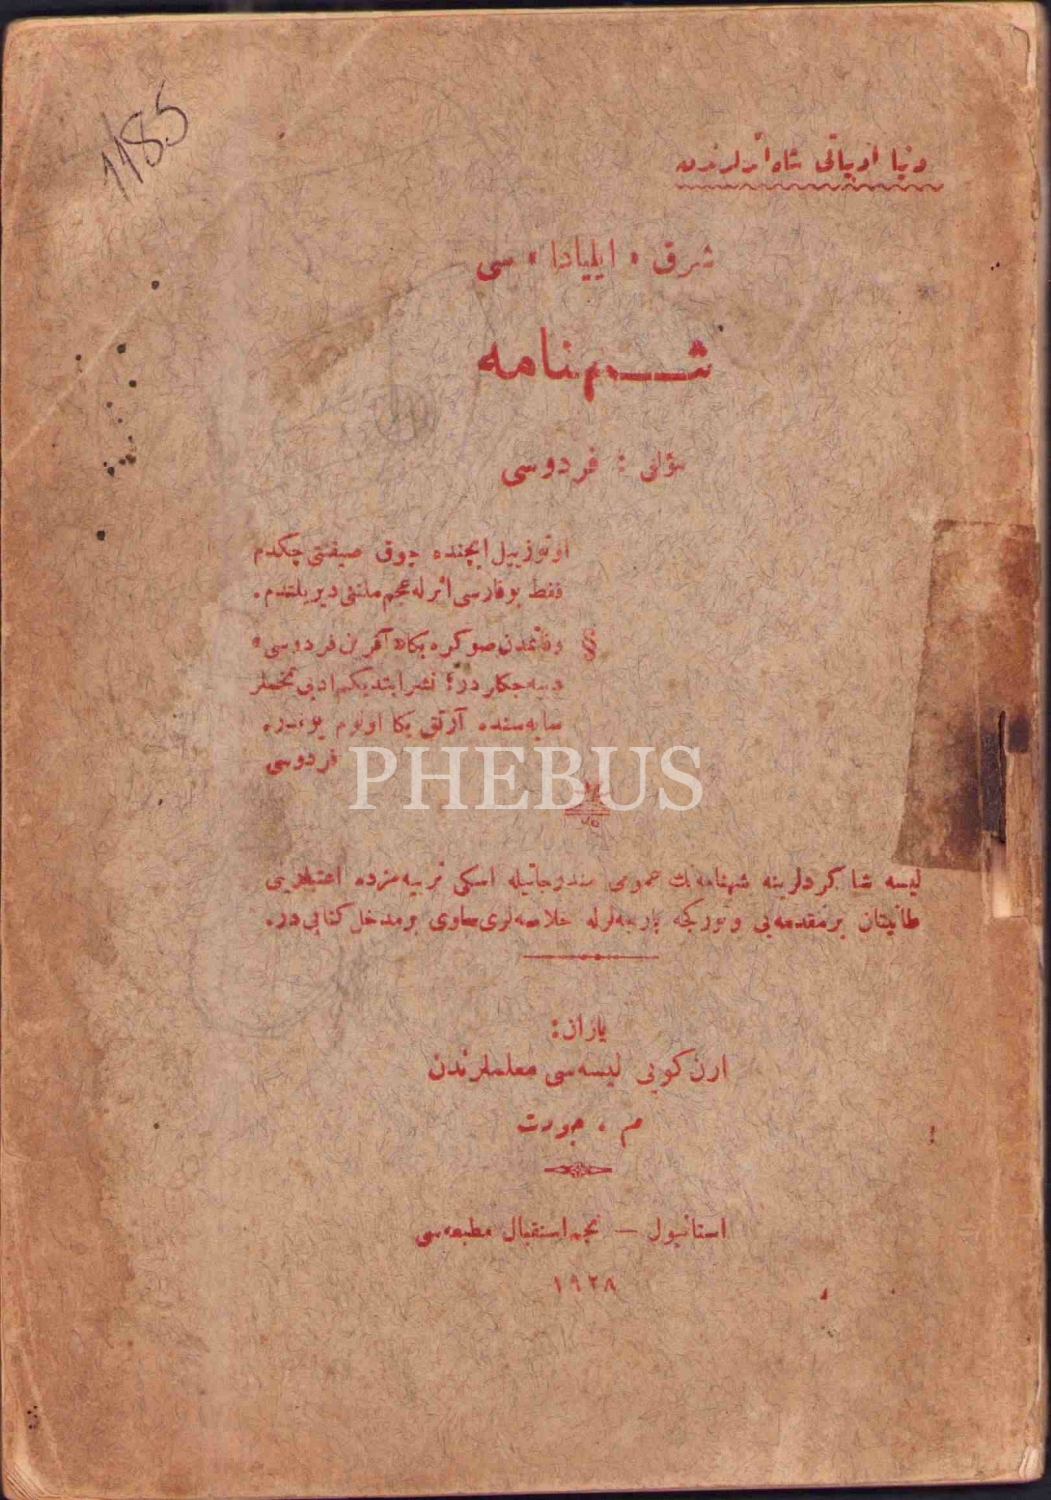 1185
دنیا ادبیاتی شاه اثرلرندن
شرق «ایلیادا» سی
شهنامه
مؤلفی : فردوسی
اوتوز ییل ایچنده چوق صیقنتی چکدم
فقط بو فارسی اثرله عجم ملتنی دیریلتدم.
§ وفاتمدن صوکره بکا «آفرین فردوسی»
دییه جکلر در؛ نشر ایتدیکم ادبی تخملر
سایه سنده آرتق بکا اولوم یوقدر.
فردوسی
PHEBUS
لیسه شاکردلرینه شهنامه نك عمومی مندرجاتیله اسکی تربیه مزده اعتبارینی
طانیتان بر مقدمه یی و تورکجه پارچه لرله خلاصه لری حاوی بر مدخل کتابی در.
یازان:
ارن کویی لیسه سی معلملرندن
م . جودت
استانبول — نجم استقبال مطبعه سی
١٩٢٨